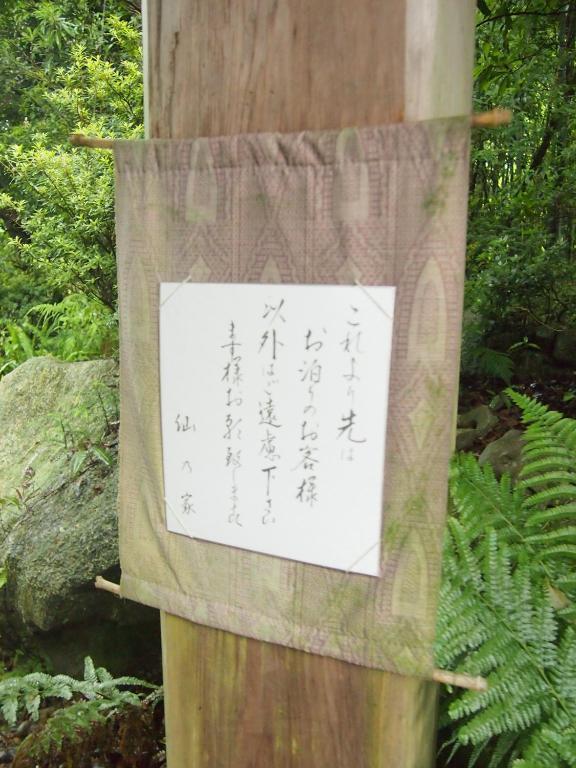 これより先は
お泊りのお客様
以外はご遠慮下さい
ます様お願い致します
仙乃家